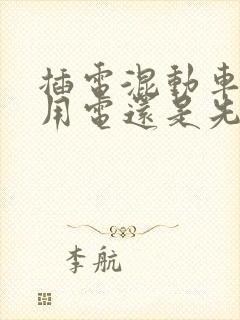 插電混動車
用電還是先
李航